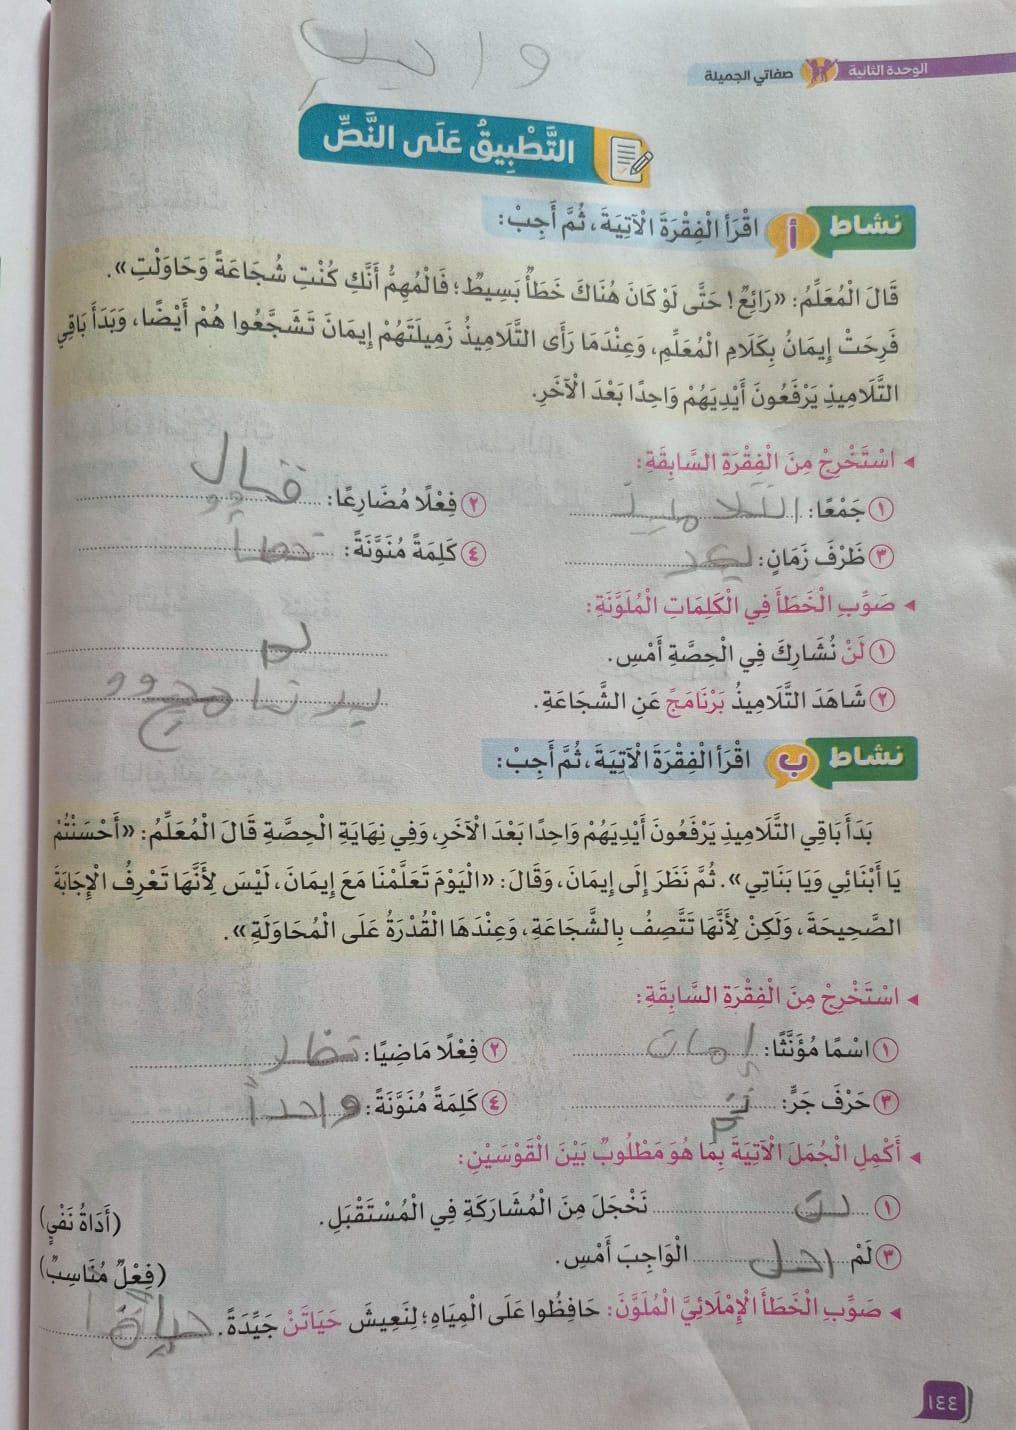 الوحدة الثانية صفاتي الجميلة
التَّطْبِيقُ عَلَى النَّصِّ
نشاط أ اقْرَأِ الْفِقْرَةَ الْآتِيَةَ، ثُمَّ أَجِبْ:
قَالَ الْمُعَلِّمُ: «رَائِعٌ! حَتَّى لَوْ كَانَ هُنَاكَ خَطَأٌ بَسِيطٌ؛ فَالْمُهِمُّ أَنَّكِ كُنْتِ شُجَاعَةً وَحَاوَلْتِ».
فَرِحَتْ إِيمَانُ بِكَلَامِ الْمُعَلِّمِ، وَعِنْدَمَا رَأَى التَّلَامِيذُ زَمِيلَتَهُمْ إِيمَانَ تَشَجَّعُوا هُمْ أَيْضًا، وَبَدَأَ بَاقِي
التَّلَامِيذِ يَرْفَعُونَ أَيْدِيَهُمْ وَاحِدًا بَعْدَ الْآخَرِ.
اسْتَخْرِجْ مِنَ الْفِقْرَةِ السَّابِقَةِ:
١ جَمْعًا: التلاميذ ٢ فِعْلًا مُضَارِعًا:
٣ ظَرْفَ زَمَانٍ: بعد ٤ كَلِمَةً مُنَوَّنَةً: خطأ
صَوِّبِ الْخَطَأَ فِي الْكَلِمَاتِ الْمُلَوَّنَةِ:
١ لَنْ نُشَارِكَ فِي الْحِصَّةِ أَمْسِ. لم
٢ شَاهَدَ التَّلَامِيذُ بَرْنَامَجً عَنِ الشَّجَاعَةِ.
نشاط ب اقْرَأِ الْفِقْرَةَ الْآتِيَةَ، ثُمَّ أَجِبْ:
بَدَأَ بَاقِي التَّلَامِيذِ يَرْفَعُونَ أَيْدِيَهُمْ وَاحِدًا بَعْدَ الْآخَرِ، وَفِي نِهَايَةِ الْحِصَّةِ قَالَ الْمُعَلِّمُ: «أَحْسَنْتُمْ
يَا أَبْنَائِي وَيَا بَنَاتِي». ثُمَّ نَظَرَ إِلَى إِيمَانَ، وَقَالَ: «الْيَوْمَ تَعَلَّمْنَا مَعَ إِيمَانَ، لَيْسَ لِأَنَّهَا تَعْرِفُ الْإِجَابَةَ
الصَّحِيحَةَ، وَلَكِنْ لِأَنَّهَا تَتَّصِفُ بِالشَّجَاعَةِ، وَعِنْدَهَا الْقُدْرَةُ عَلَى الْمُحَاوَلَةِ».
اسْتَخْرِجْ مِنَ الْفِقْرَةِ السَّابِقَةِ:
١ اسْمًا مُؤَنَّثًا: إمان ٢ فِعْلًا مَاضِيًا: نظر
٣ حَرْفَ جَرٍّ: ٤ كَلِمَةً مُنَوَّنَةً: واحداً
أَكْمِلِ الْجُمَلَ الْآتِيَةَ بِمَا هُوَ مَطْلُوبٌ بَيْنَ الْقَوْسَيْنِ:
١ لن نَخْجَلَ مِنَ الْمُشَارَكَةِ فِي الْمُسْتَقْبَلِ. (أَدَاةُ نَفْيٍ)
٣ لَمْ احل الْوَاجِبَ أَمْسِ. (فِعْلٌ مُنَاسِبٌ)
صَوِّبِ الْخَطَأَ الْإِمْلَائِيَّ الْمُلَوَّنَ: حَافِظُوا عَلَى الْمِيَاهِ؛ لِنَعِيشَ حَيَاتَنْ جَيِّدَةً.
١٤٤